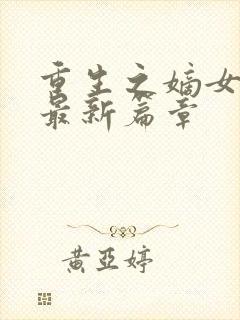 重生之嫡女
最新篇章
黄亞婷